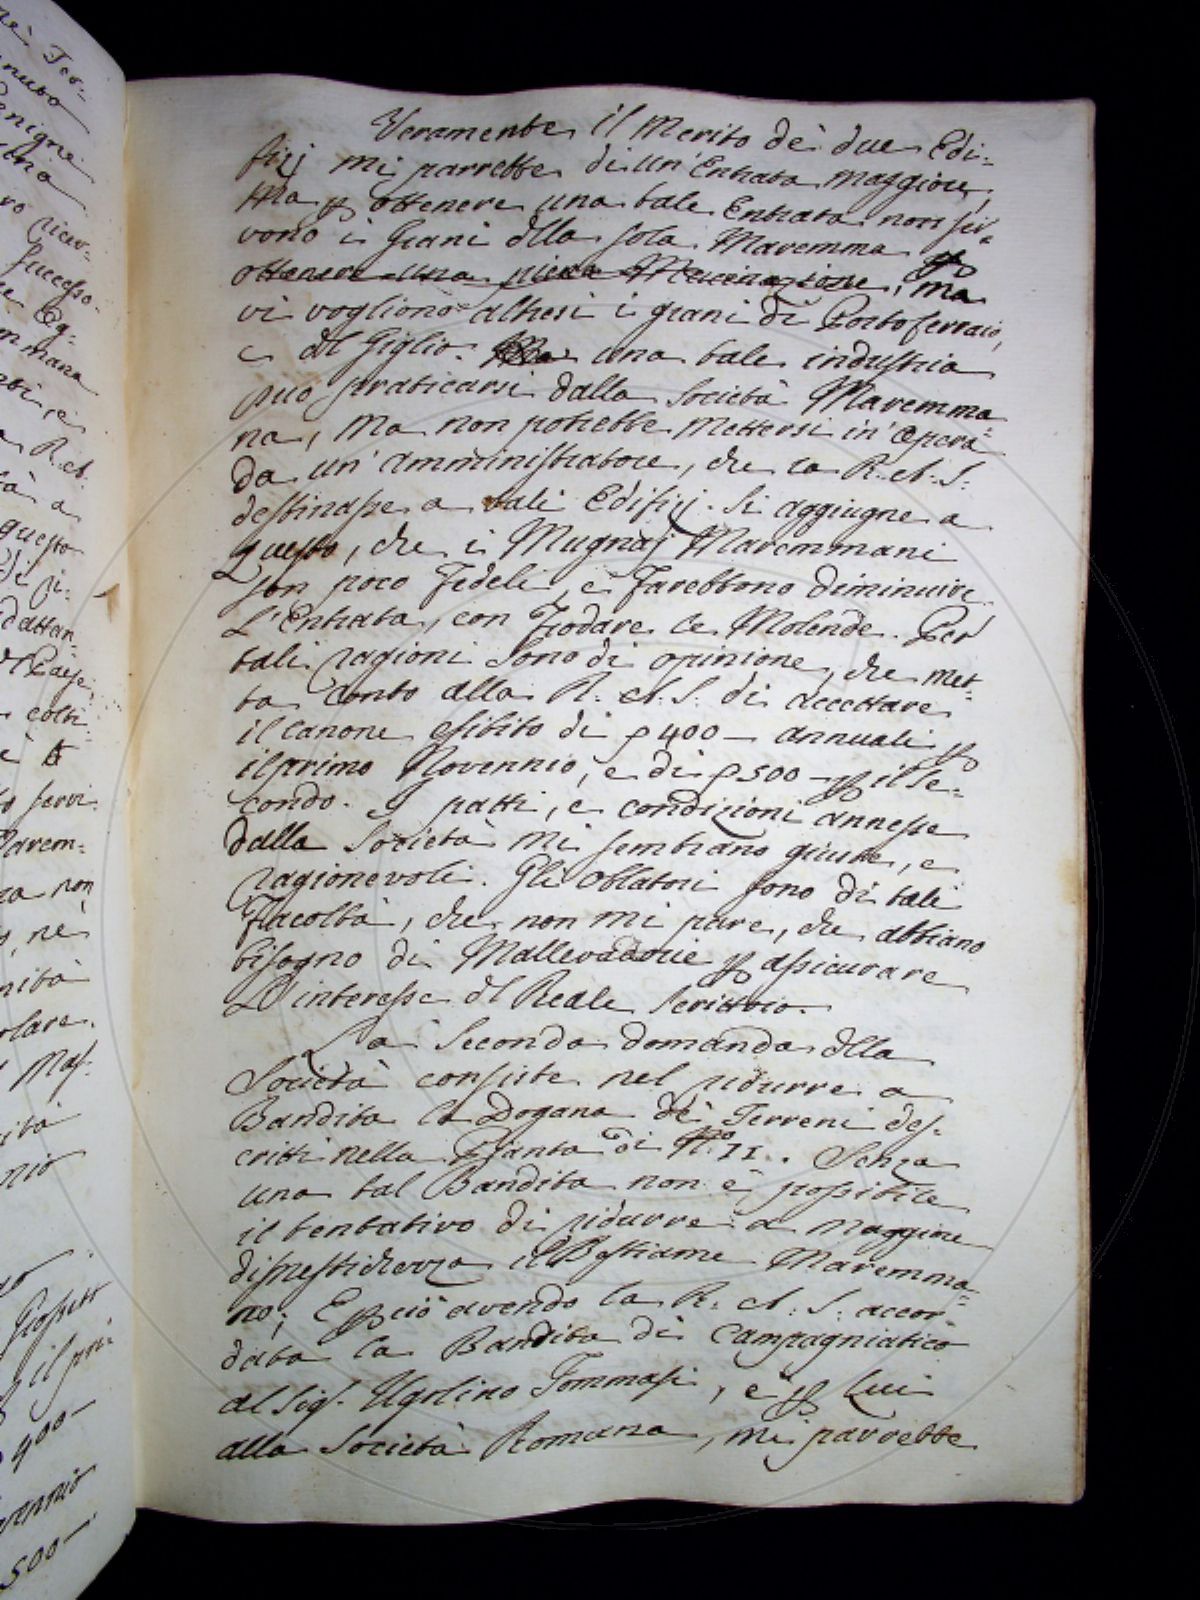 Veramente il Merito de' due Edi-
fizj mi parrebbe di un' Entrata maggiore,
Ma p ottenere una tale Entrata non ser-
vono i Grani dlla sola Maremma p
ottenere una piena Macinazione, ma
vi vogliono altresi i grani di Portoferraio,
e dl Giglio. Ma una tale industria
può praticarsi dalla Società Maremma
na, Ma non potrebbe mettersi in' opera
da un' amministratore, che la R. A. S.
destinasse a tali Edifizj. Si aggiugne a
questo, che i Mugnaj Maremmani
son poco Fedeli, e Farebbono diminuire
L'Entrata, con Frodare le Molende. Per
tali ragioni Sono di opinione, che met-
ta conto alla R. A. S. di accettare
il canone esibito di 400 - annuali p
il primo Novennio, e di 500 - p il Se-
condo. I patti, e condizioni annesse
dalla Società mi sembrano giuste, e
ragionevoli. Gli Oblatori sono di tali
Facoltà, che non mi pare, che abbiano
bisogno di Mallevadorie p assicurare
L'interesse dl Reale Scrittoio.
La Seconda domanda dlla
Società consiste nel ridurre a
Bandita la Dogana de' Terreni des-
critti nella Pianta di N.º II. Senza
una tal Bandita non è possibile
il tentativo di ridurre a maggiore
dimestichezza il Bestiame Maremma-
no; E p ciò avendo la R. A. S. accor-
data la Bandita di Campagniatico
al Sig.r Ugolino Tommasi, e p Lui
alla Società Romana, mi parrebbe